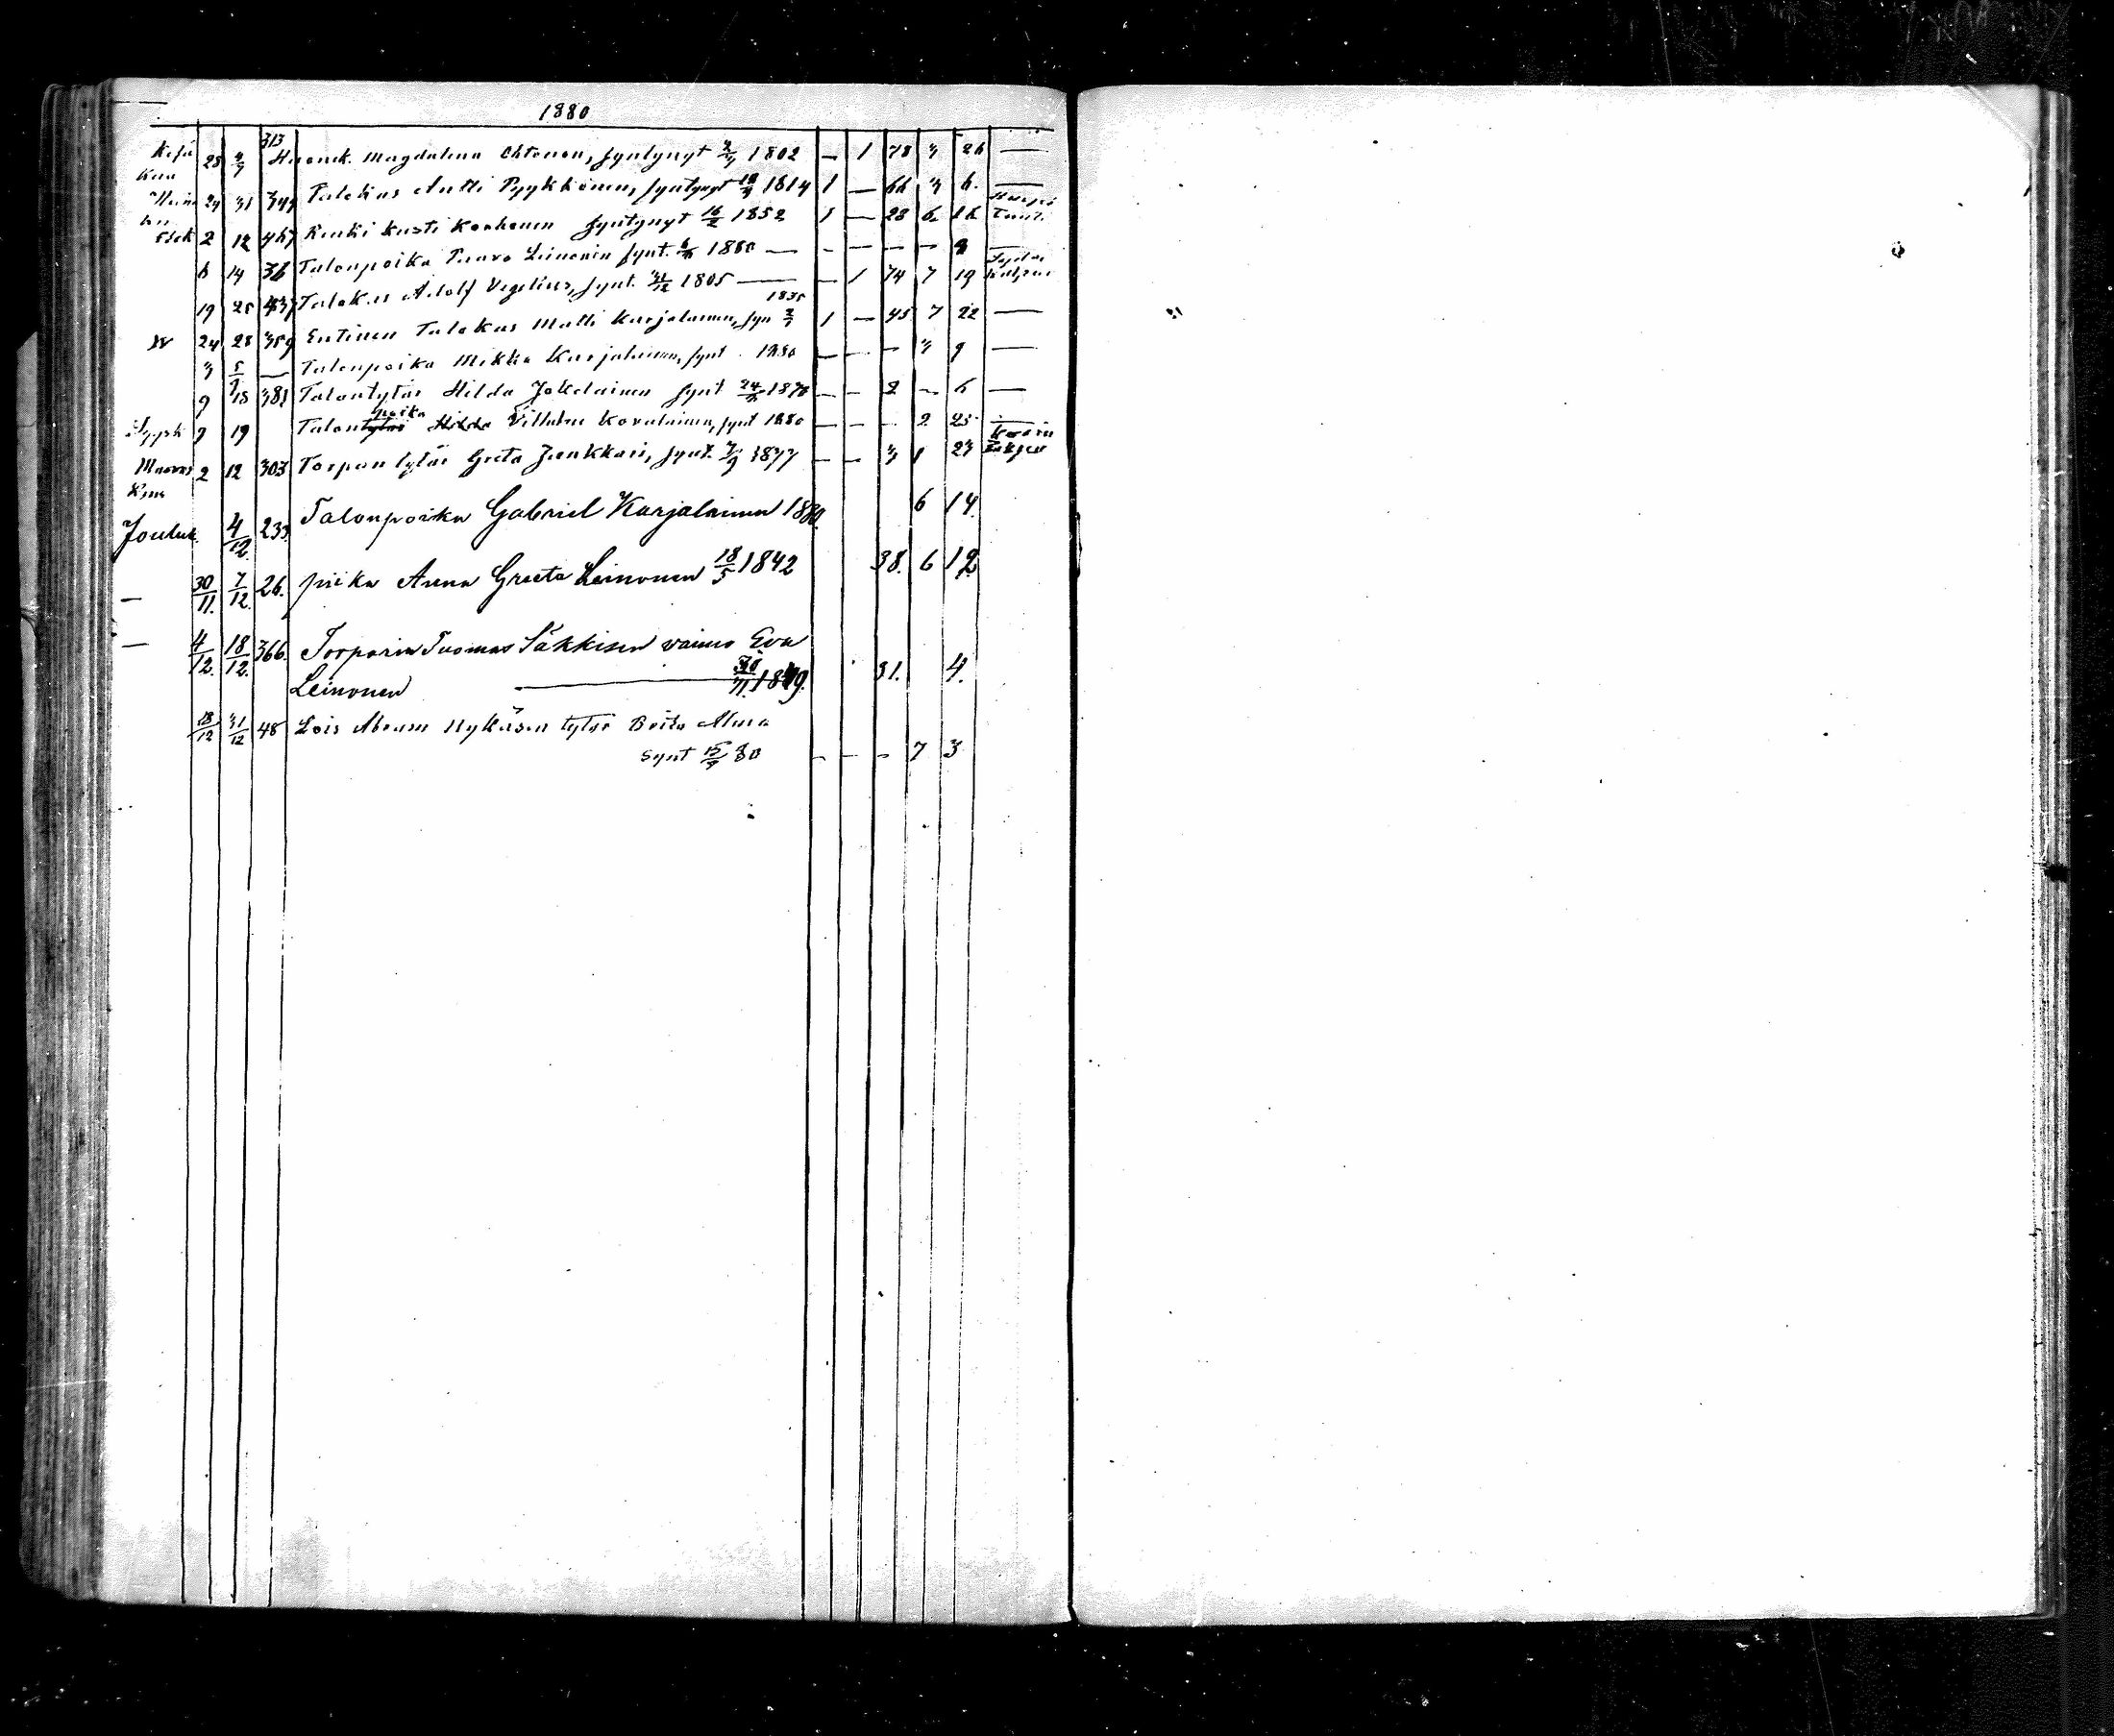 1880
Kesä 28 4/7 313 Huonek. Magdalena Ohtonen, syntynyt 2/7 1802 — 1 78 3 26 —
kuu
Heinä 24 31 349 Talokas Antti Pyykkönen, syntynyt 18/4 1814 1 — 66 3 6. —
kuu
Elok 2 12 467 Renki Kusti Korhonen syntynyt 16/2 1852 1 — 28 6 16
6 14 36 Talonpoika Paavo Leinonen synt. 1880 — — — — — 9 —
19 25 437 Talok. Adolf Vegelius, synt. 31/12 1805 — — 1 74 7 19
1835
24 28 359 Entinen Talokas Matti Karjalainen, syn 1 — 45 7 22 —
3 5/9 — Talonpoika Mikko Karjalainen, synt 1880 — — — 3 9 —
9 18 381 Talontytär Hilda Jokelainen synt 24/8 1878 — — 2 — 6 —
poika
Syysk 9 19 Talontytär Hilda Vilhelm Kovalainen, synt 1880 — — — 2 25 —
Marras 2 12 303 Torpan tytär Greta Junkkari, synt. 7/9 1877 — — 3 1 23
kuu
Jouluk. 4/12. 233 Talonpoika Gabriel Karjalainen 1880. 6 14.
— 30/11. 7/12. 26. piika Anna Greeta Leinonen 18/5 1842 38. 6 12
— 4/12. 18/12. 366. Torparin Tuomas Säkkisen vaimo Eva
Leinonen — 30/11. 1849. 31. 4.
18/12 31/12 48 Lois Abram Nykäsen tytär Brita Alma
synt 15/9 80 — — — 7 3